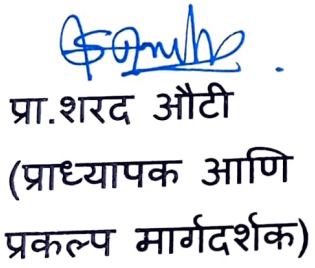 प्रा.शरद औटी
(प्राध्यापक आणि
प्रकल्प मार्गदर्शक)